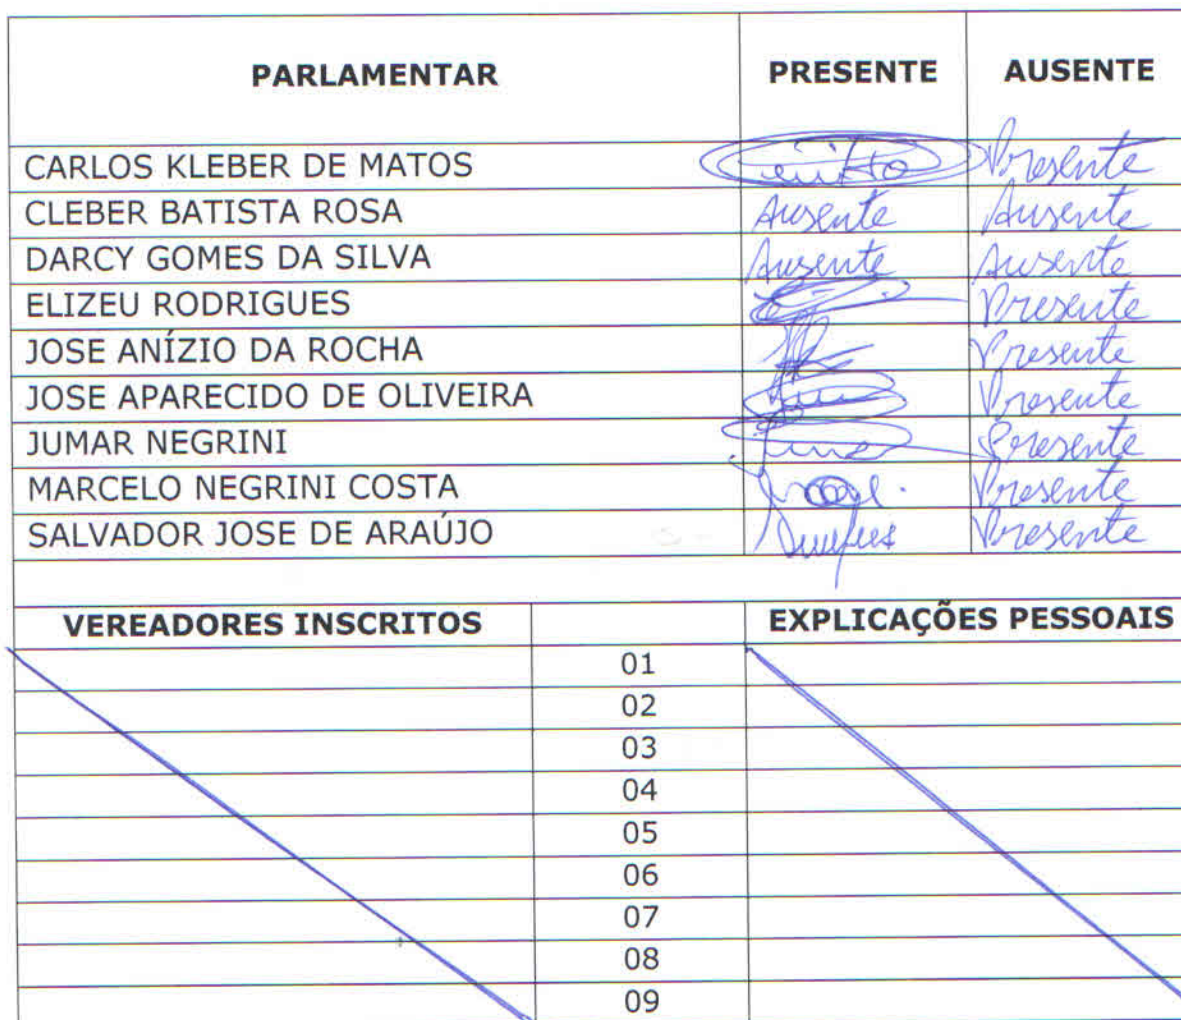 PARLAMENTAR PRESENTE AUSENTE
CARLOS KLEBER DE MATOS Presente
CLEBER BATISTA ROSA Ausente Ausente
DARCY GOMES DA SILVA Ausente Ausente
ELIZEU RODRIGUES Presente
JOSE ANÍZIO DA ROCHA Presente
JOSE APARECIDO DE OLIVEIRA Presente
JUMAR NEGRINI Presente
MARCELO NEGRINI COSTA Presente
SALVADOR JOSE DE ARAÚJO Presente
VEREADORES INSCRITOS EXPLICAÇÕES PESSOAIS
01
02
03
04
05
06
07
08
09